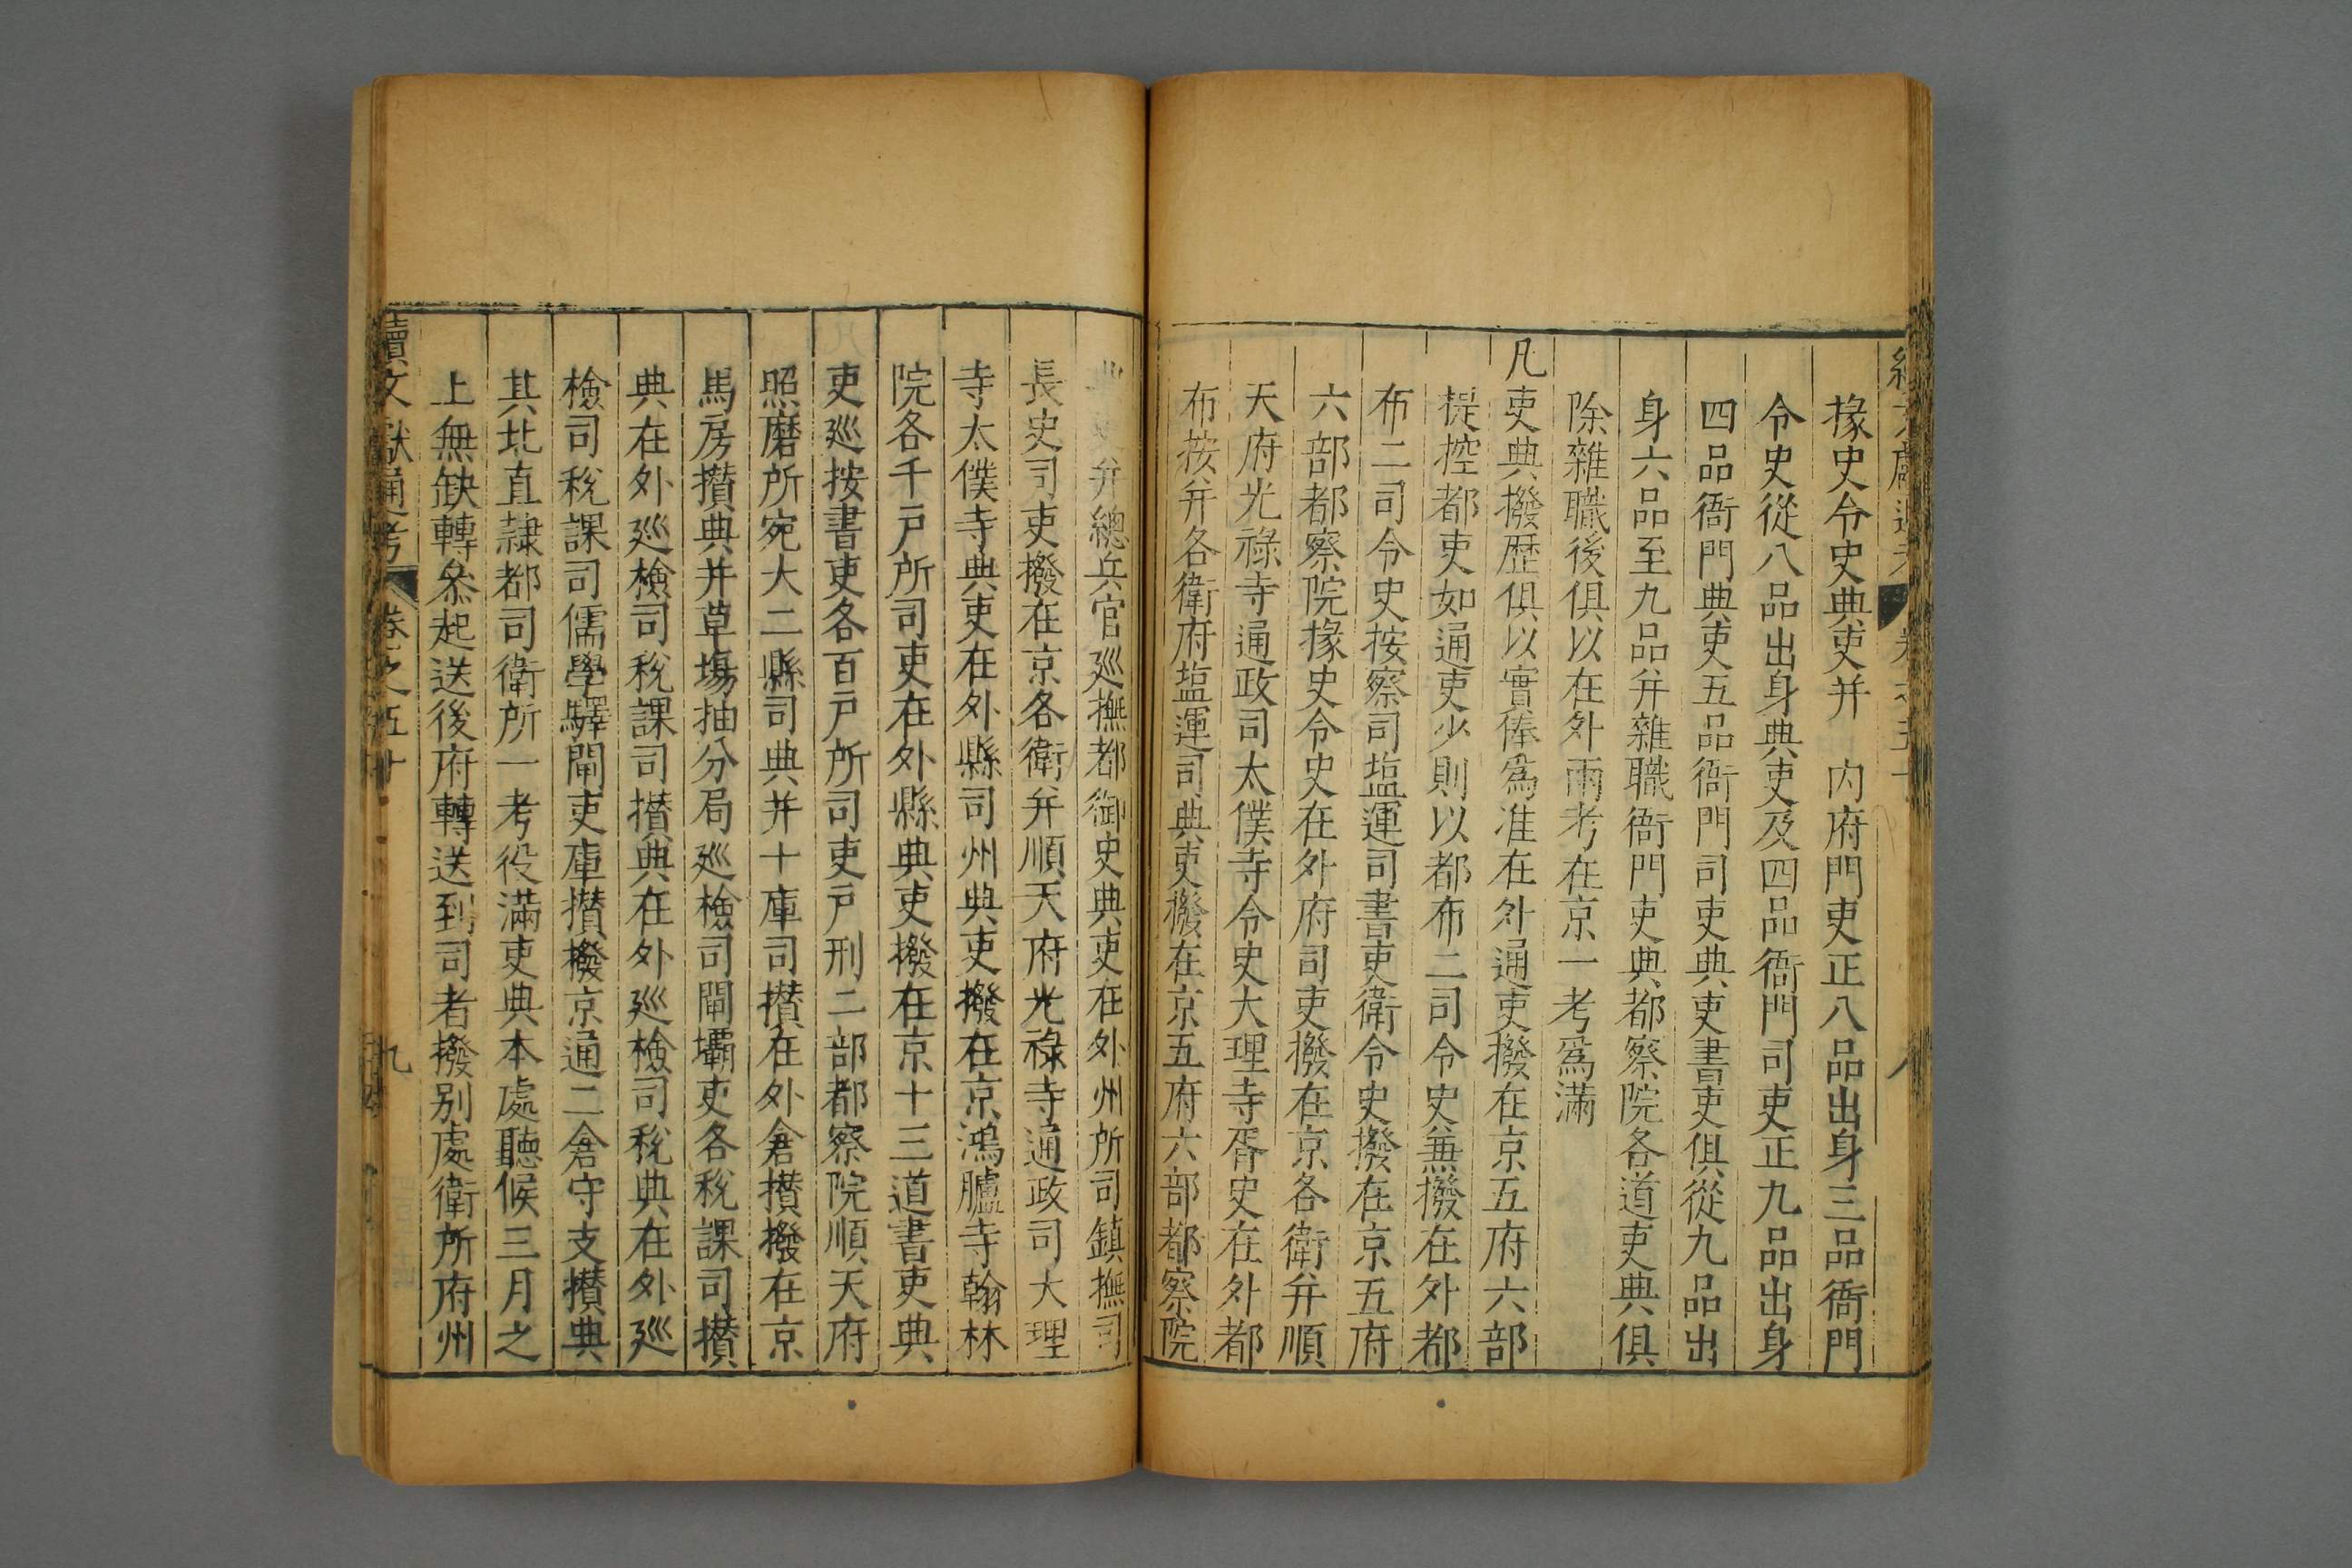 掾史令史典吏并　內府門吏正八品出身三品衙門
令史從八品出身典吏及四品衙門司吏正九品出身
四品衙門典吏五品衙門司吏典吏書吏俱從九品出
身六品至九品并雜職衙門吏典都察院各道吏典俱
除雜職後俱以在外兩考在京一考爲滿
凡吏典撥歷俱以實俸爲准在外通吏撥在京五府六部
提控都吏如通吏少則以都布二司令史兼撥在外都
布二司令史按察司塩運司書吏衛令史撥在京五府
六部都察院掾史令史在外府司吏撥在京各衛并順
天府光祿寺通政司太僕寺令史大理寺胥史在外都
布按并各衛府塩運司典吏撥在京五府六部都察院
并總兵官廵撫都御史典吏在外州所司鎮撫司
長史司吏撥在京各衛并順天府光祿寺通政司大理
寺太僕寺典吏在外縣司州典吏撥在京鴻臚寺翰林
院各千戶所司吏在外縣典吏撥在京十三道書吏典
吏廵按書吏各百戶所司吏戶刑二部都察院順天府
照磨所宛大二縣司典并十庫司攅在外倉攅撥在京
馬房攅典并草塲抽分局廵檢司閘壩吏各稅課司攅
典在外廵檢司稅課司攅典在外廵檢司稅典在外廵
檢司稅課司儒學驛閘吏庫攅撥京通二倉守支攅典
其北直隷都司衛所一考役滿吏典本處聽候三月之
上無缺轉叅起送後府轉送到司者撥别處衛所府州
續文獻通考　卷之五十　九